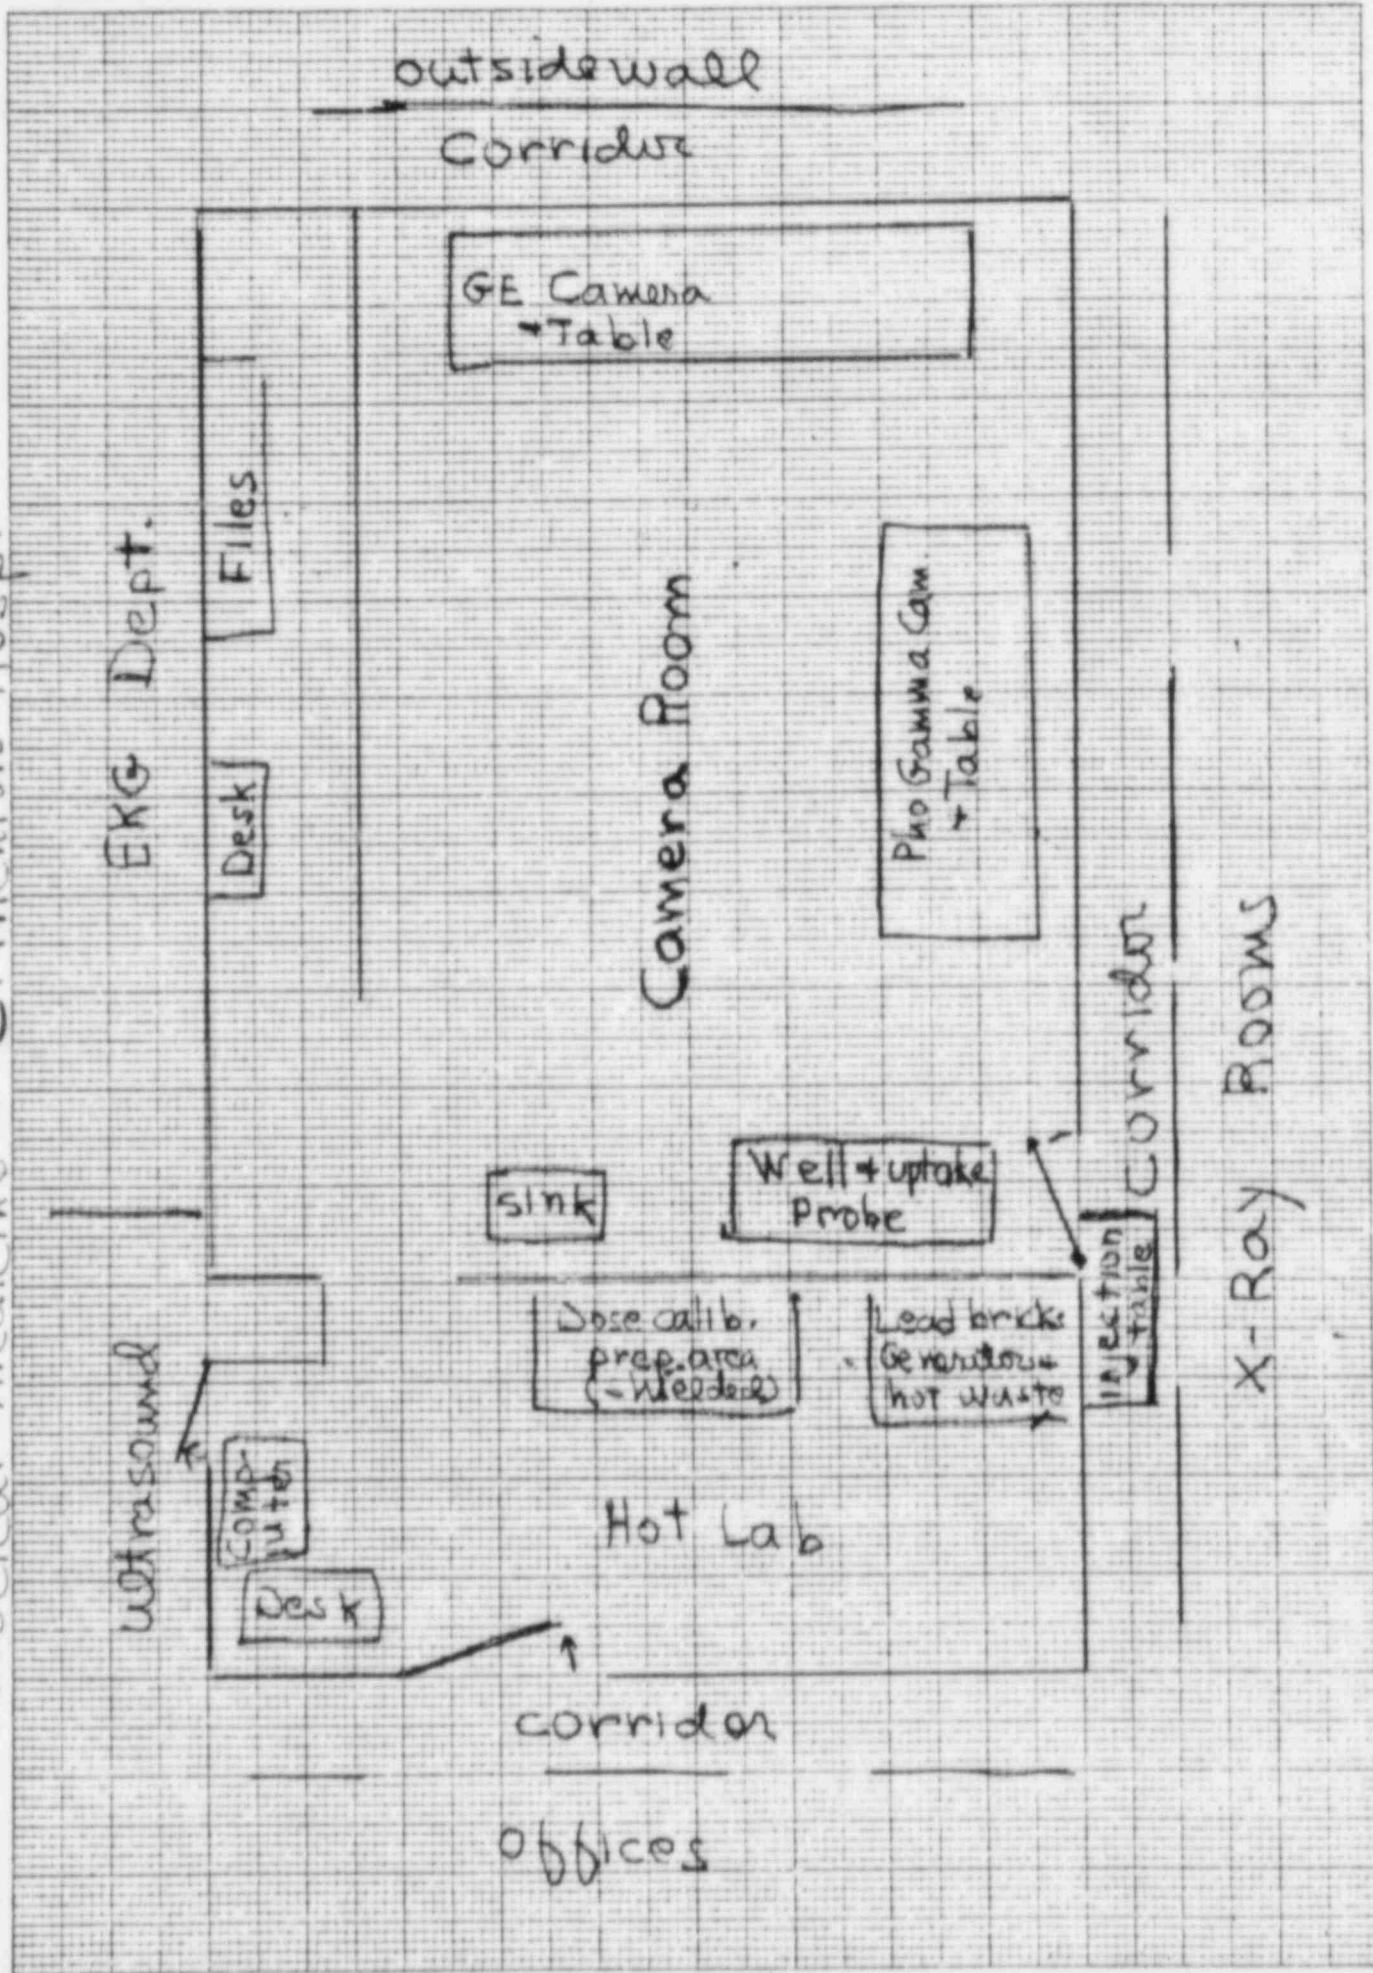 outsidewall
Corridor
GE Camera
+ Table
EKG Dept.
Files
Desk
Camera Room
Pho Gamma Cam.
+ Table
Corridor
X-Ray Rooms
sink
Well + uptake
Probe
Injection
table
Dose calib.
prep. area
Lead bricks
Generator +
hot waste
Ultrasound
Comp-
uter
Desk
Hot Lab
corridor
offices